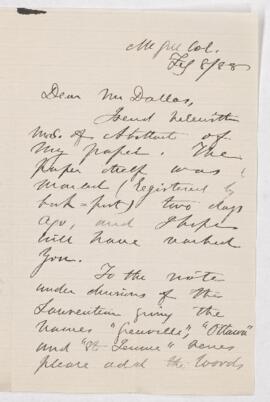 McGill Col.
Feby 8/88
Dear Mr Dallas,
I send herewith
ms. of Abstract of
my paper. The
paper itself was
mailed (registered by
book-post) two days
ago, and I hope
will have reached
you.
To the note
under divisions of the
Laurentian giving the
names "Grenville", "Ottawa"
and "St Jerome" series
please add the words